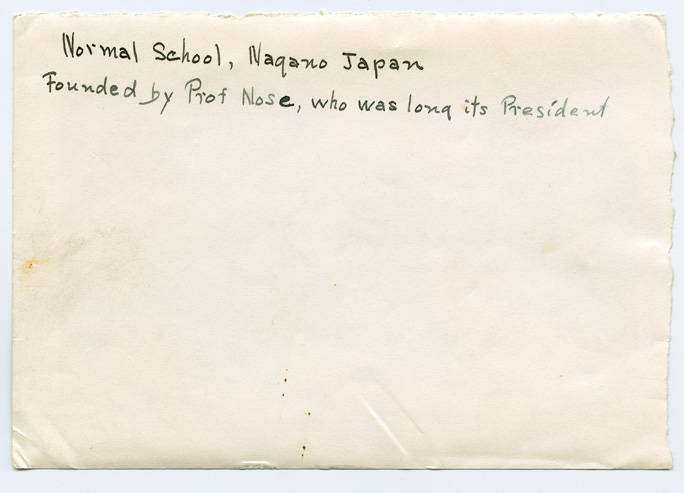 Normal School, Nagano Japan
Founded by Prof Nose, who was long its President